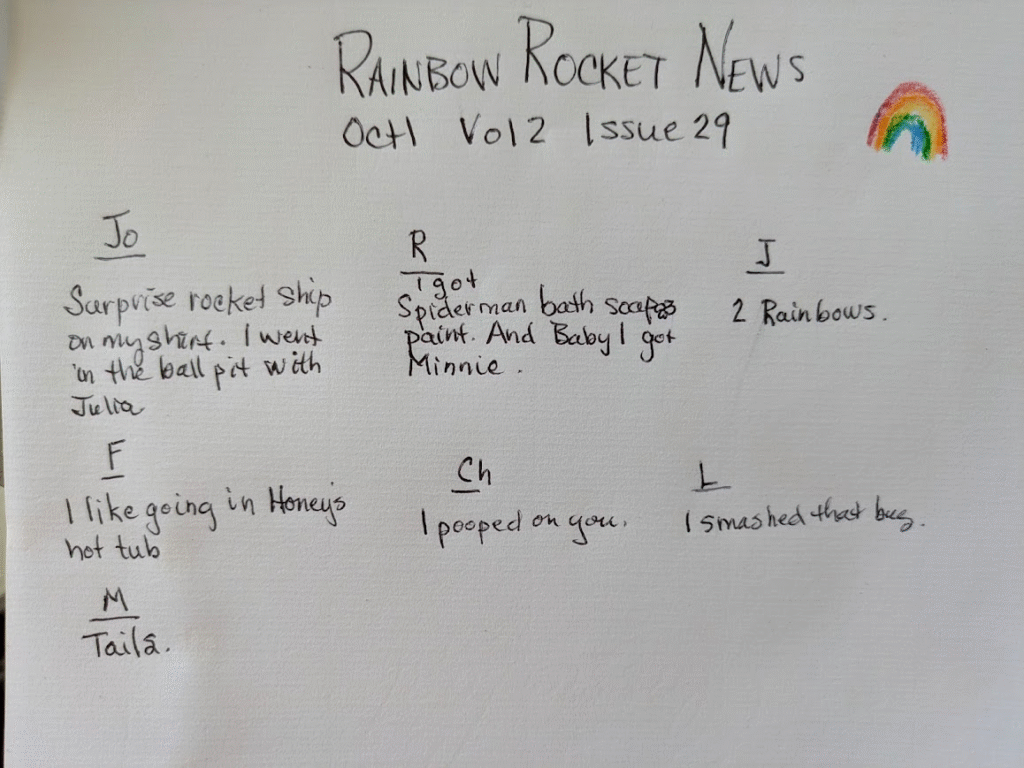 RAINBOW ROCKET NEWS
Oct 1 Vol 2 Issue 29
Jo
Surprise rocket ship
on my shirt. I went
in the ball pit with
Julia
R
I got
Spiderman bath
paint. And Baby I got
Minnie.
J
2 Rainbows.
F
I like going in Honey's
hot tub
Ch
I pooped on you.
L
I smashed that bug.
M
Tails.